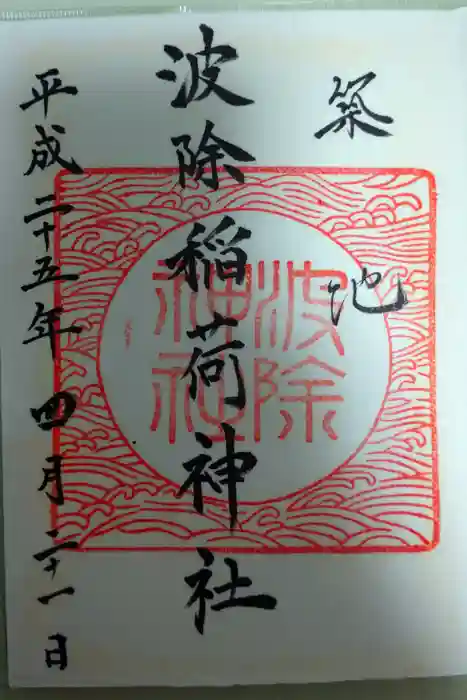 築地
波除稲荷神社
平成二十五年四月二十一日
波除
神社